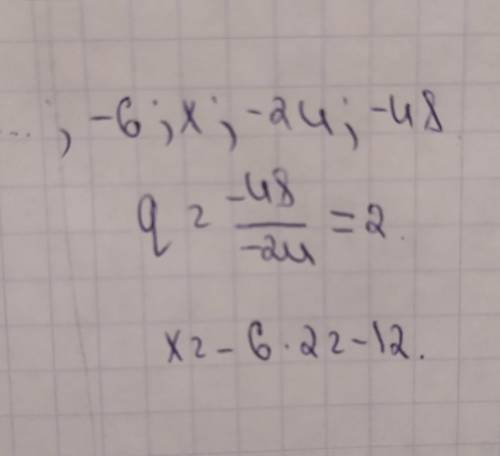 ...; -6; x; -24; -48
q = -48/-24 = 2.
x = -6 · 2 = -12.